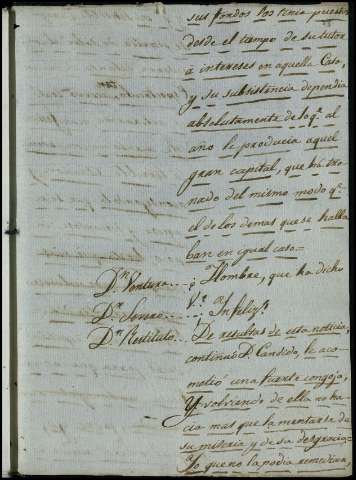 sus fondos los tenia puestos
desde el tiempo de su tutor
à intereses en aquella Casa,
y su subsistencia dependia
absolutamente de lo q.e al
año le producia aquel
gran capital, que há tro-
nado del mismo modo q.e
el de los demas que se halla
ban en igual caso=
D.n Ventura ... ¿Hombre, que ha dicho
V.?
D.n Severo ... Infeliz!
D.n Restituto ... De resultas de esta noticia,
continuó D. Candido, le aco-
metió una fuerte congoja,
y volviendo de ella no ha-
cia mas que lamentarse de
su miseria y de su desgracia
Yo que no la podia remediar,